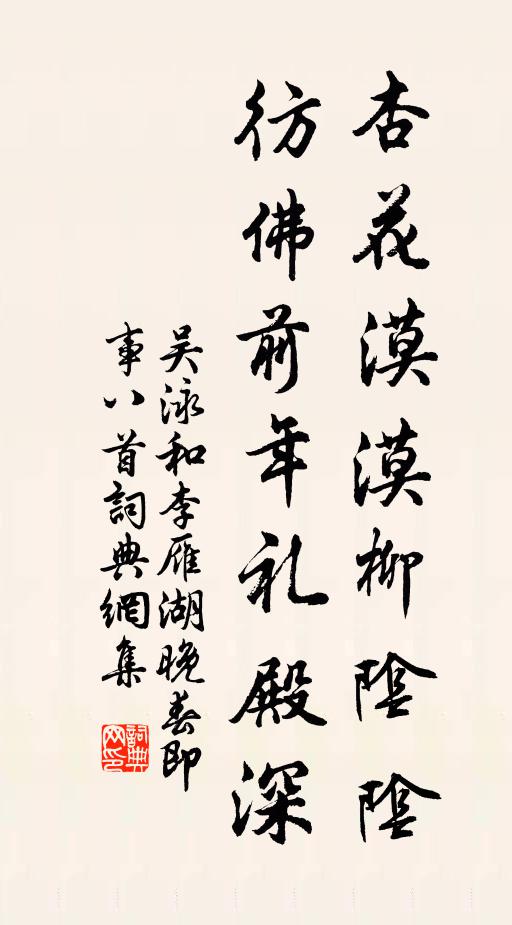 杏花漠漠柳陰陰
彷佛前年礼殿深
吴泳和李雁湖晚春即
事八首詞典網集
詞典网印